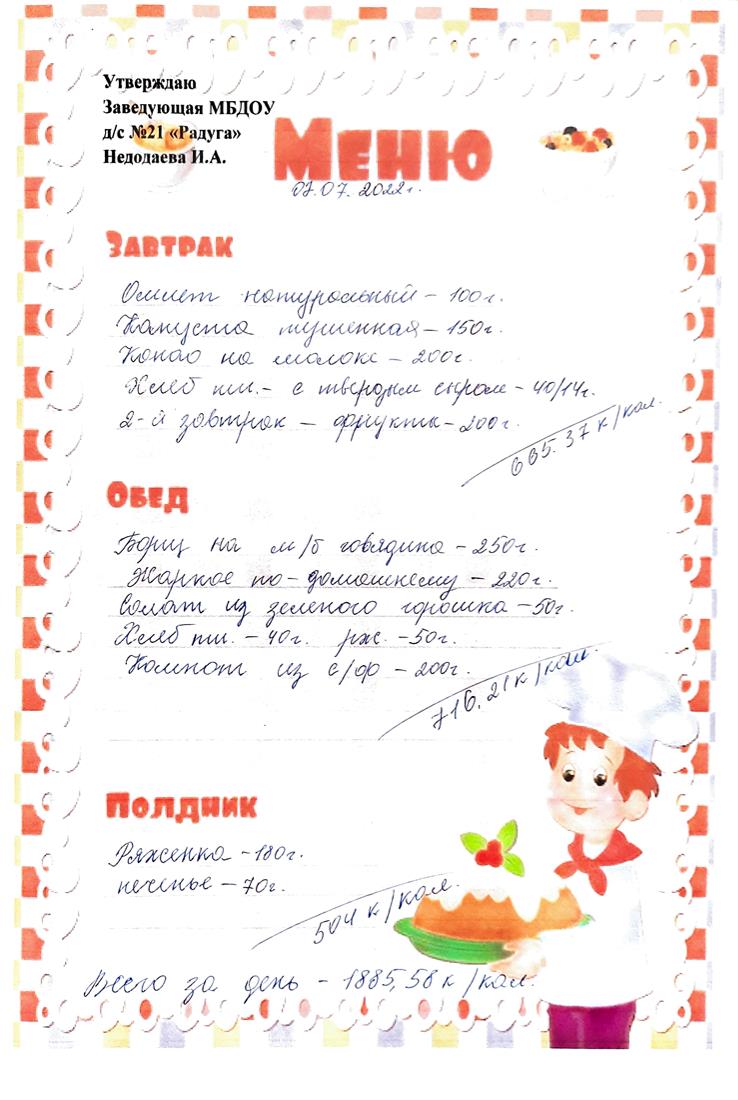 Утверждаю
Заведующая МБДОУ
д/с №21 «Радуга»
Недодаева И.А.
Меню
07.07.2022г.
Завтрак
Омлет натуральный – 100г.
Капуста тушенная – 150г.
Какао на молоке – 200г.
Хлеб пш. – с твердым сыром – 40/14г.
2-й завтрак – фрукты – 200г.
665.37 к/кал.
Обед
Борщ на м/б говядина – 250г.
Жаркое по-домашнему – 220г.
Салат из зеленого горошка – 50г.
Хлеб пш. – 40г. рж. – 50г.
Компот из с/фр – 200г.
716,21 к/кал.
Полдник
Ряженка – 180г.
печенье – 70г.
504 к/кал.
Всего за день – 1885,58 к/кал.